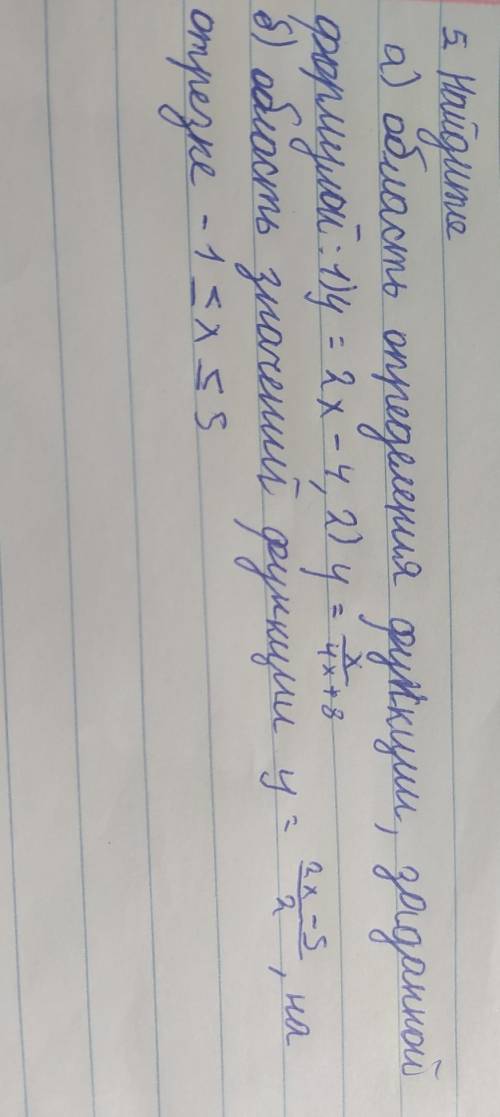 5. Найдите
а) область определения функции, заданной
формулой: 1) y = 2x - 4, 2) y = x/(4x+8)
б) область значений функции y = (2x-5)/2, на
отрезке -1 ≤ x ≤ 5